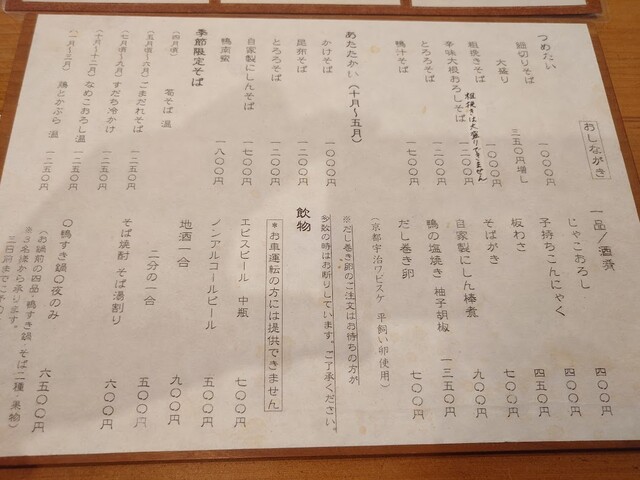 おしながき
つめたい
細切りそば 一〇〇〇円
大盛り 三五〇円増し
粗挽きそば 一二〇〇円
粗挽きは大盛りできません
辛味大根おろしそば 一二〇〇円
とろろそば 一二〇〇円
鴨汁そば 一七〇〇円
あたたかい（十月〜五月）
かけそば 一〇〇〇円
昆布そば 一二〇〇円
とろろそば 一二〇〇円
自家製にしんそば 一七〇〇円
鴨南蛮 一八〇〇円
季節限定そば
（四月頃） 筍そば 温 一二五〇円
（五月頃〜六月）ごまだれそば 一二五〇円
（七月頃〜九月）すだち冷かけ 一二五〇円
（十月〜十二月）なめこおろし温 一二五〇円
（一月〜三月）鶏とかぶら 温 一二五〇円
一品／酒済
じゃこおろし 四〇〇円
子持ちこんにゃく 四五〇円
板わさ 七〇〇円
そばがき 九〇〇円
自家製にしん棒煮 九〇〇円
鴨の塩焼き 柚子胡椒 一三五〇円
だし巻き卵 七〇〇円
（京都宇治ワビスケ 平飼い卵使用）
※だし巻き卵のご注文はお待ちの方が
多数の時はお断りしています。ご了承ください。
飲物
＊お車運転の方には提供できません
エビスビール 中瓶 七〇〇円
ノンアルコールビール 五〇〇円
地酒一合 九〇〇円
二分の一合 五〇〇円
そば焼酎 そば湯割り 六〇〇円
〇鴨すき鍋〇夜のみ 六五〇〇円
（お鍋前の四品 鴨すき鍋 そば二種・果物）
※3名様から承ります。
三日前までご予の